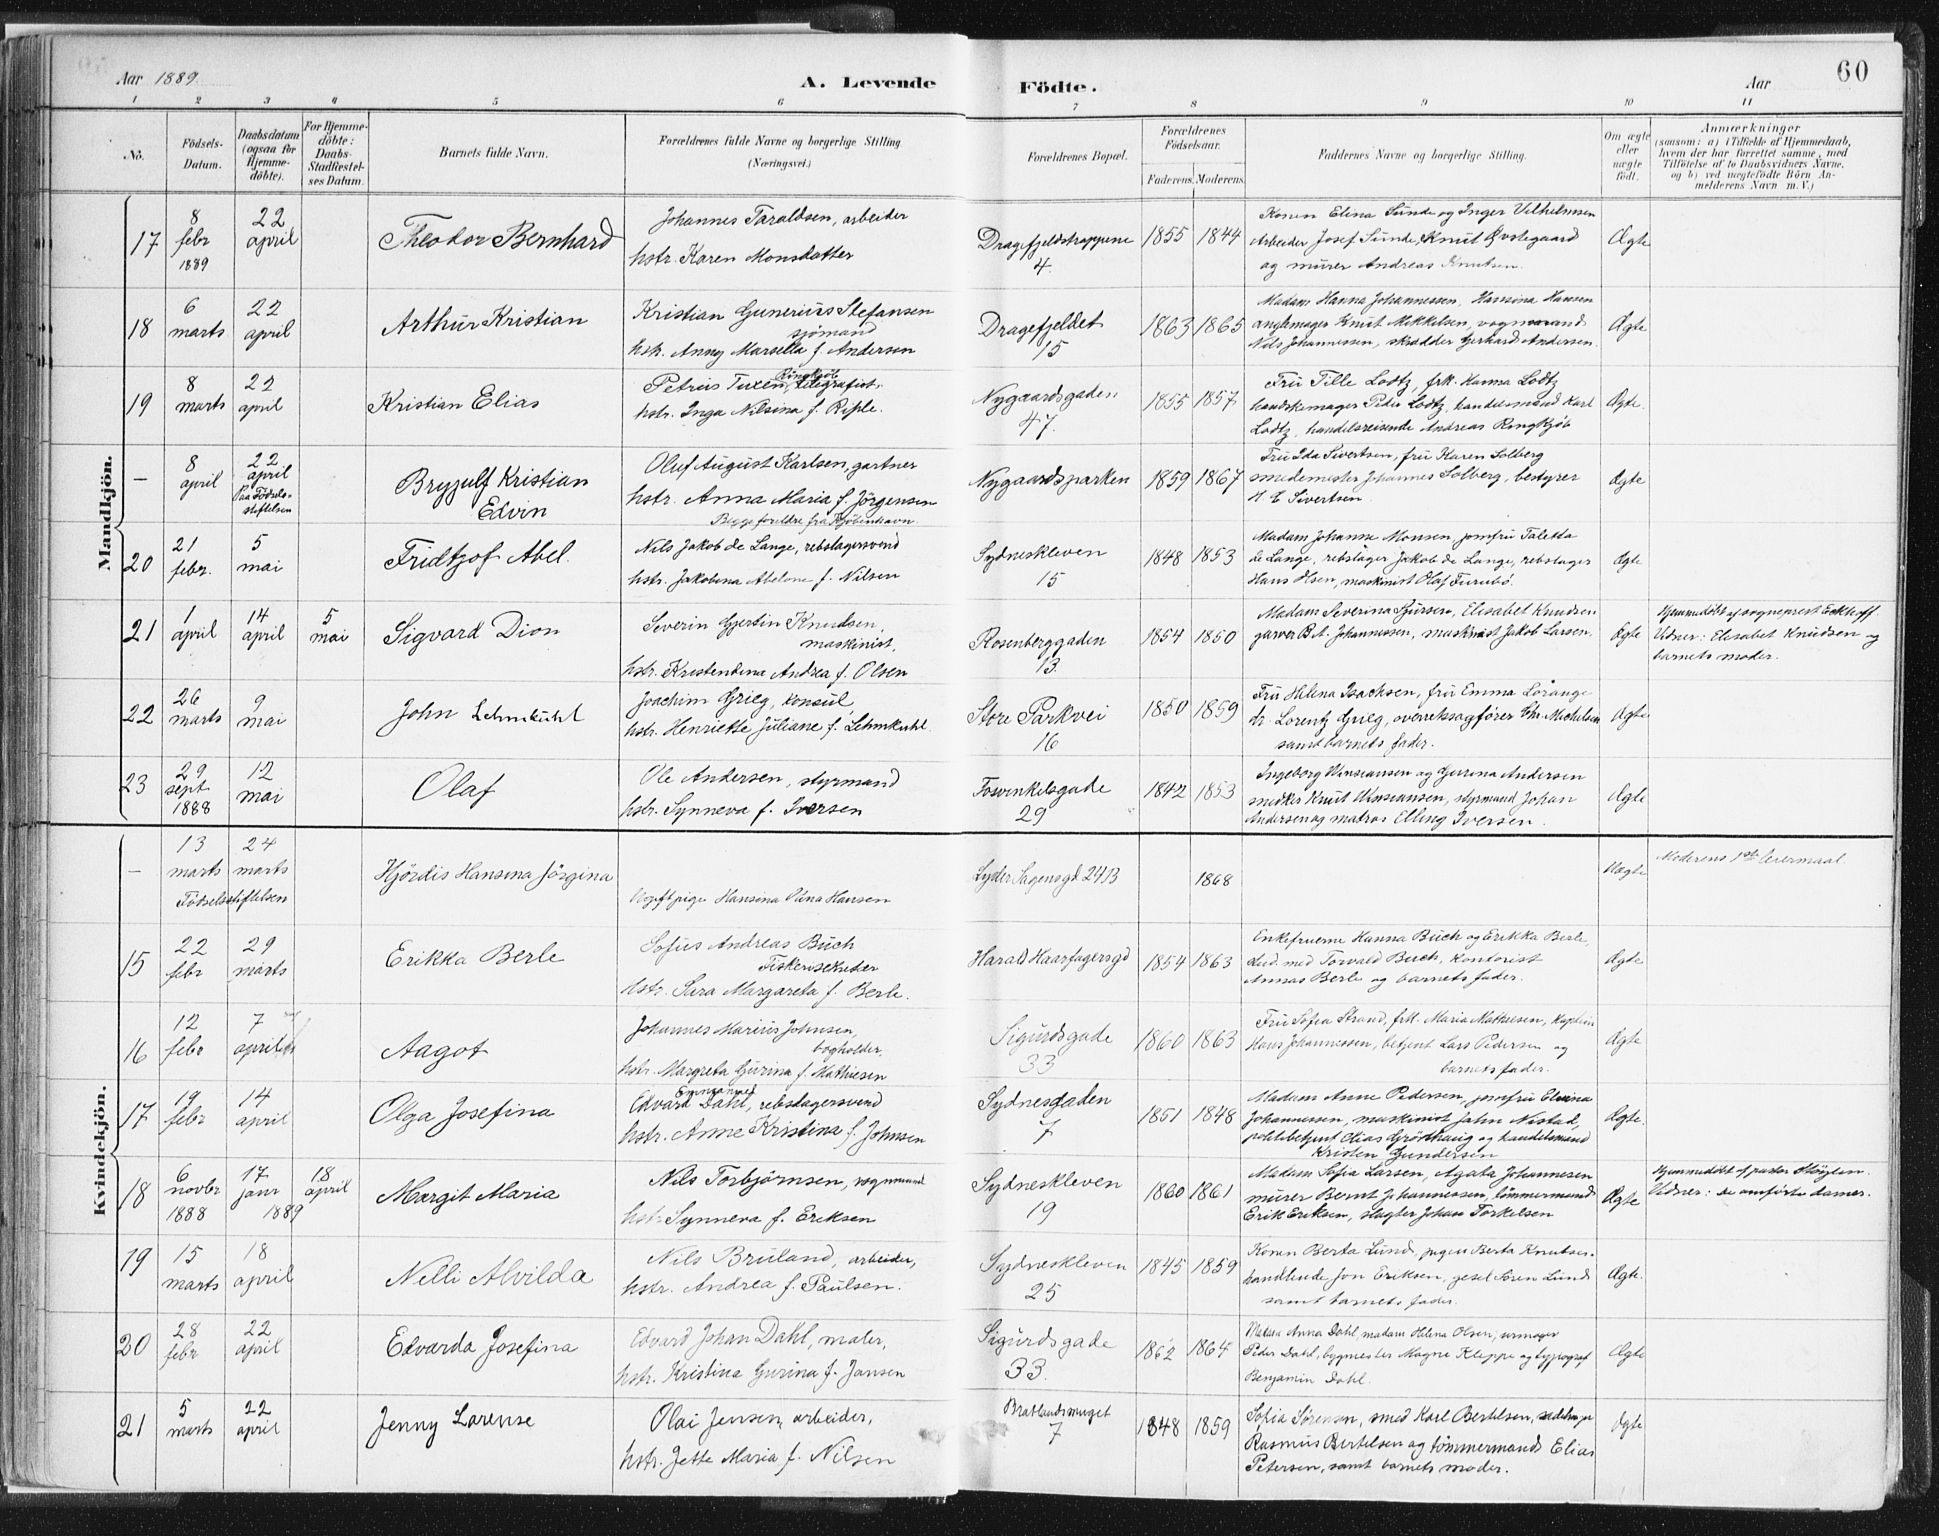 Aar 1889. A. Levende Födte. Aar 60
1 2 3 4 5 6 7 8 9 10 11
No. Födsels-Datum. Daabsdatum (ogsaa for Hjemmedöbte). For Hjemmedöbte: Daabs-Stadfæstelses Datum. Barnets fulde Navn. Forældrenes fulde Navne og borgerlige Stilling (Næringsvei.) Forældrenes Bopæl. Forældrenes Födselsaar. Faderens. Moderens. Faddernes Navne og borgerlige Stilling. Om ægte eller uægte födt. Anmærkninger (saasom: a) i Tilfælde af Hjemmedaab, hvem der har forrettet samme, med Tilföielse af to Daabsvidners Navne, og b) ved uægtefödte Börn Anmelderens Navn m. V.)
Mandkjön.
17 8 febr 1889 22 april Theodor Bernhard Johannes Taraldsen, arbeider
hstr. Karen Monsdatter
Dragefjeldstrappene 4. 1855 1844
Konen Elina Sunde og Inger Vilhelmsen
Arbeider Josef Sunde, Knut Øvstegaard
og murer Andreas Knutsen. Ægte
18 6 marts 22 april Arthur Kristian Kristian Gunerius Stefansen
sjömand
hstr. Anny Marsella f. Andersen
Dragefjeldet 15 1863 1865
Madam Hanna Johannessen, Hansina Hansen
Knut Mikkelsen, vognmand
Nils Johannessen, skrædder Gerhard Andersen. Ægte
19 8 marts 22 april Kristian Elias Petrus Tuxen Ringkjöb, telegrafist,
hstr. Inga Nilsina f. Riple.
Nygaardsgaden 47. 1855 1857
Fru Tille Lodtz, frk. Hanna Lodtz
handskemager Peder Lodtz, handelsmand Karl
Lodtz, handelsreisende Andreas Ringkjöb Ægte.
– 8 april 22 april Paa Födselsstiftelsen Brynjulf Kristian Edvin
Oluf August Karlsen, gartner
hstr. Anna Maria f. Jörgensen
Begge foreldre fra Kjöbenhavn.
Nygaardsparken 1859 1867
Fru Ida Sivertsen, fru Karen Solberg
smedemester Johannes Solberg, bestyrer
H E Sivertsen. Ægte
20 21 febr. 5 mai Fridtjof Abel. Nils Jakob de Lange, rebslagersvend
hstr. Jakobina Abelone f. Nilsen
Sydneskleven 15 1848 1853
Madam Johanne Monsen, jomfru Taletta
de Lange, rebslager Jakob de Lange, rebslager
Hans Olsen, maskinist Olaf Furubö. Ægte
21 1 april 14 april 5 mai Sigvard Dion Severin Gjertin Knudsen,
maskinist,
hstr. Kristendina Andrea f. Olsen
Rosenberggaden 13. 1854 1850
Madam Severina Sjursen, Elisabet Knudsen
garver B. A. Johannessen, maskinist Jakob Larsen. Ægte
Hjemmedöbt af sogneprest Eckhoff.
Vidner: Elisabet Knudsen og
barnets moder.
22 26 marts 9 mai John Lehmkuhl Joachim Grieg, konsul,
hstr. Henriette Juliane f. Lehmkuhl.
Store Parkvei 16 1850 1859
Fru Helena Isachsen, fru Emma Lorange
hr. Lorentz Grieg, overretssagförer Chr. Michelsen
samt barnets fader. Ægte
23 29 sept 1888 12 mai Olaf Ole Andersen, styrmand
hstr. Synneva f. Iversen
Fosvinkelsgade 29 1842 1853
Ingeborg og Gurina Andersen
snedker Knut styrmand Johan
Andersen og matros Elling Iversen. Ægte
Kvindekjön.
– 13 marts 24 marts Födselsstiftelsen Hjördis Hansina Jörgina
Ugift pige Hansina Olina Hansen
Lyder Sagensgd 24B 1868 Uægte Moderens 1ste leiermaal
15 22 febr 29 marts Erikka Berle Sofus Andreas Buch
Fiskerisekretær
hstr. Sara Margareta f. Berle.
Harald Haarfagersgd 1854 1863
Enkefruerne Hanna Buch og Erikka Berle,
stud. med Torvald Buch, kontorist
Annas Berle og barnets fader. Ægte
16 12 febr 7 april Aagot Johannes Marius Johnsen,
bogholder,
hstr. Margreta Gurina f. Mathiesen
Sigurdsgade 33 1860 1863
Fru Sofia Strand, frk. Maria Mathiesen, kaptein
Hans Johannessen, betjent Lars Pedersen og
barnets fader. Ægte
17 19 febr 14 april Olga Josefina Edvard Emmanuel Dahl, rebslagersvend
hstr. Anne Kristina f. Johnsen
Sydnesgaden 7 1851 1848
Madam Anne Pedersen, jomfru Elvina
Johannessen, maskinist Jahn Nistad,
politibetjent Elias Grösthaug og handelsmand
Kristen Gundersen Ægte.
18 6 novbr 1888 17 janr 1889 18 april Margit Maria Nils Torbjörnsen, vognmand
hstr. Synneva f. Eriksen
Sydneskleven 19 1860 1861
Madam Sofia Larsen, Agata Johannesen
murer Bernt Johannessen, tömmermand
Erik Eriksen, slagter Johan Torkelsen Ægte
Hjemmedöbt af pastor
Vidner: de anförte damer.
19 15 marts 18 april Nelli Alvilda Nils Bruland, arbeider,
hstr. Andrea f. Paulsen.
Sydneskleven 25 1845 1859
Konen Berta Lund, pigen Berta Knutsen
handlende Jon Eriksen, gesel Sören Lund
samt barnets fader. Ægte.
20 28 febr 22 april Edvarda Josefina Edvard Johan Dahl, maler,
hstr. Kristina Gurina f. Jansen
Sigurdsgade 33. 1862 1864
Madam Anna Dahl, madam Helena Olsen, urmager
Peder Dahl, bygmester Magne Kleppe og typograf
Benjamin Dahl. Ægte
21 5 marts 22 april Jenny Larense Olai Jensen, arbeider,
hstr. Jette Maria f. Nilsen
Bratlandsmuget 7 1848 1859
Sofia Sörensen, smed Karl Bertelsen,
Rasmus Bertelsen og tömmermand Elias
Petersen, samt barnets moder. Ægte